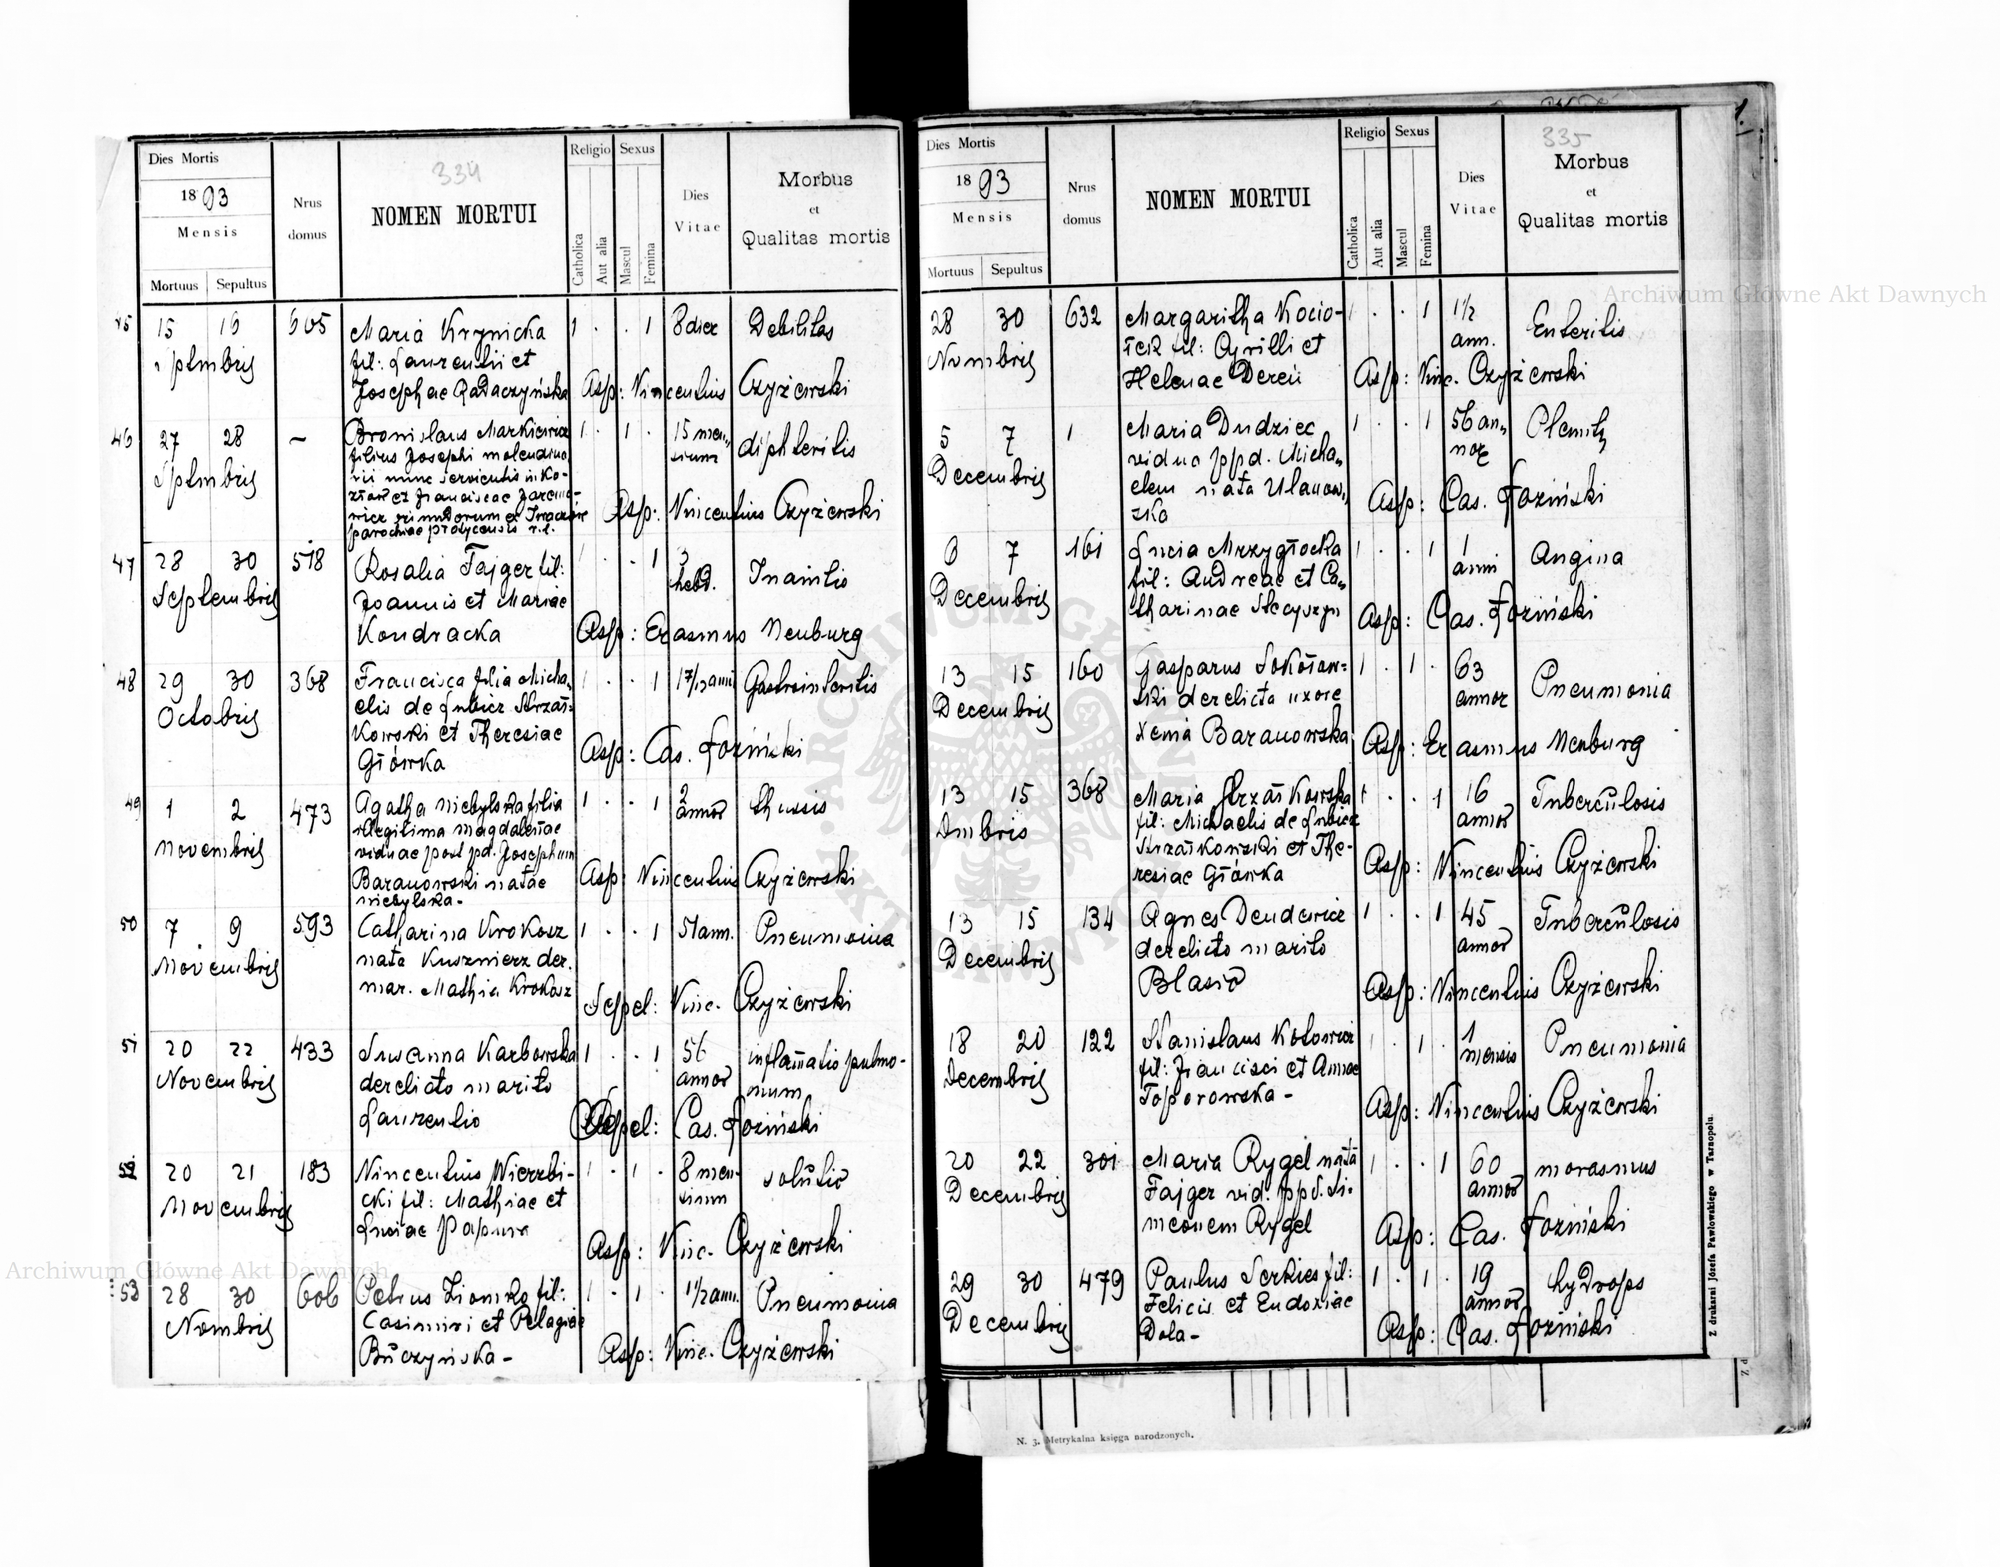 334
Dies Mortis
1893
Mensis
Mortuus Sepultus
Nrus
domus
NOMEN MORTUI
Religio
Catholica
Aut alia
Sexus
Mascul
Femina
Dies
Vitae
Morbus
et
Qualitas mortis
15 16 605 Maria Krynicka 1 . . 1 8 dier Debilitas
fil: Laurentii et
Josephae Radaczyńska Asp: Vincentius Czyżewski
46 27 28 – Bronislaus Markiewicz 1 . 1 . 15 men- diphteritis
Sptmbris filius Josephi molendina- sium
rii nunc servientis in Ko-
parochiae
Asp: Vincentius Czyżewski
47 28 30 518 Rosalia Fajger fil: 1 . . 1 3 Inanitio
Septembris Joannis et Mariae hebd.
Kondracka Asp: Erasmus Neuburg
48 29 30 368 Francisca filia Micha- 1 . . 1 17/12 anni Gastrointeritis
Octobris elis de Lubicz Strzał-
kowski et Theresiae
Główka Asp: Cas. Łoziński
49 1 2 473 Agatha Niebylska filia 1 . . 1 2 thussis
Novembris illegitima Magdalenae annor
viduae post pd. Josephum
Baranowski natae
Niebylska - Asp: Vincentius Czyżewski
50 7 9 593 Catharina Krokosz 1 . . 1 51 ann. Pneumonia
Novembris nata Kusznierz der.
mar. Mathia Krokosz Sepel: Vinc. Czyżewski
51 20 22 433 Suzanna Karbowska 1 . . 1 56 inflamatio pulmo-
Novembris derelicto marito annor nium
Laurentio Cas. Łoziński
52 20 21 183 Vincentius Wierzbi- 1 . 1 . 8 men- solutio
Novembris cki fil: Mathiae et sium
Luciae Papura Asp: Vinc. Czyżewski
53 28 30 606 Petrus Ziomko fil: 1 . 1 . 1 1/2 ann. Pneumonia
Nvmbris Casimiri et Pelagiae
Buczyńska - Asp: Vinc. Czyżewski
335
Dies Mortis
1893
Mensis
Mortuus Sepultus
Nrus
domus
NOMEN MORTUI
Religio
Catholica
Aut alia
Sexus
Mascul
Femina
Dies
Vitae
Morbus
et
Qualitas mortis
28 30 632 Margaritha Kocio- 1 . . 1 1 1/2 Enteritis
Nvmbris łek fil: Cyrilli et ann.
Helenae Dereń Asp: Vinc. Czyżewski
5 7 1 Maria Dudziec 1 . . 1 56 an-
Decembris vidua ppd. Micha- nor
elem nata Ulanow-
ska Asp: Cas. Łoziński
6 7 161 Lucia Mrzygłocka 1 . . 1 1 Angina
Decembris fil: Andreae et Ca- anni
tharinae Stecyszyn Asp: Cas. Łoziński
13 15 160 Gasparus Sokołow- 1 . 1 . 63 Pneumonia
Decembris ski derelicta uxore annor
Xenia Baranowska Asp: Erasmus Neuburg
13 15 368 Maria Strzałkowska 1 . . 1 16 Tuberculosis
Dmbris fil: Michaelis de Lubicz annor
Strzałkowski et The-
resiae Główka Asp: Vincentius Czyżewski
13 15 134 Agnes Dendewicz 1 . . 1 45 Tuberculosis
Decembris derelicto marito annor
Blasio Asp: Vincentius Czyżewski
18 20 122 Stanislaus Kotowicz 1 . 1 . 1 Pneumonia
Decembris fil: Francisci et Annae mensis
Toporowska - Asp: Vincentius Czyżewski
20 22 301 Maria Rygel nata 1 . . 1 60 marasmus
Decembris Fajger vid. ppd. Si- annor
meonem Rygel Asp: Cas. Łoziński
29 30 479 Paulus Serkies fil: 1 . 1 . 19 hydrops
Decembris Felicis et Eudoxiae annor
Dola - Asp: Cas. Łoziński
Z drukarni Józefa Pawłowskiego w Tarnopolu.
N. 3. Metrykalna księga narodzonych.
Archiwum Główne Akt Dawnych
Archiwum Główne Akt Dawnych